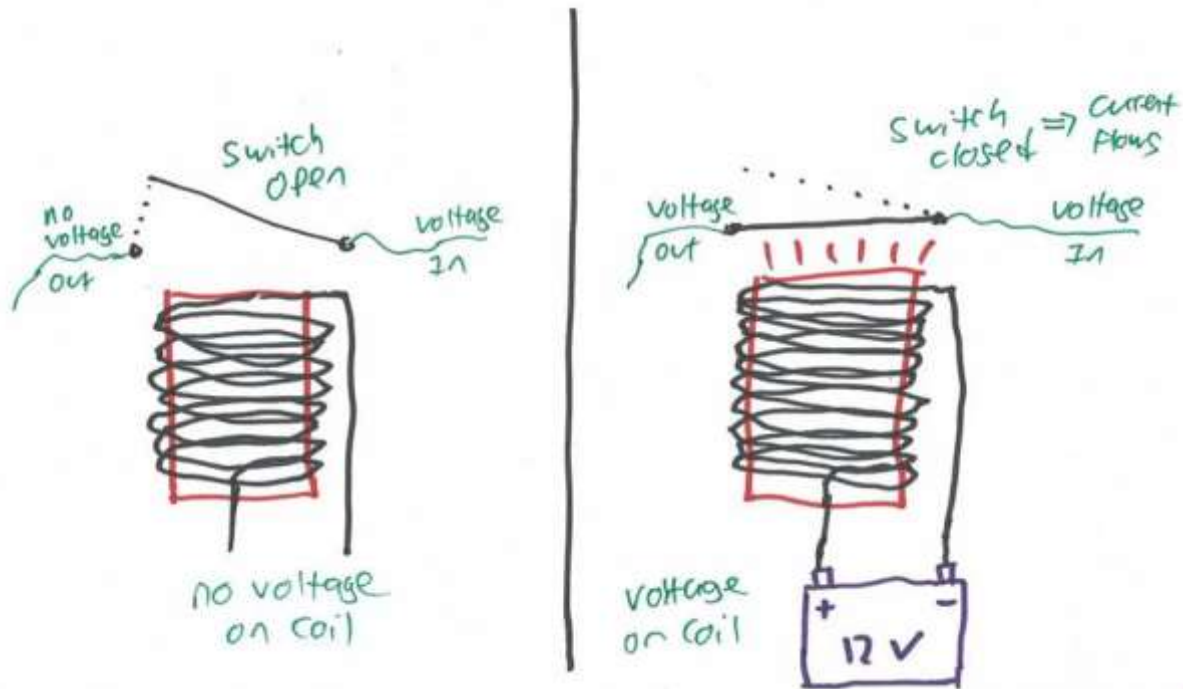 switch
open
no
voltage
out
voltage
In
no voltage
on coil
switch
closed => current
flows
voltage
out
voltage
In
voltage
on coil
+ -
12 V